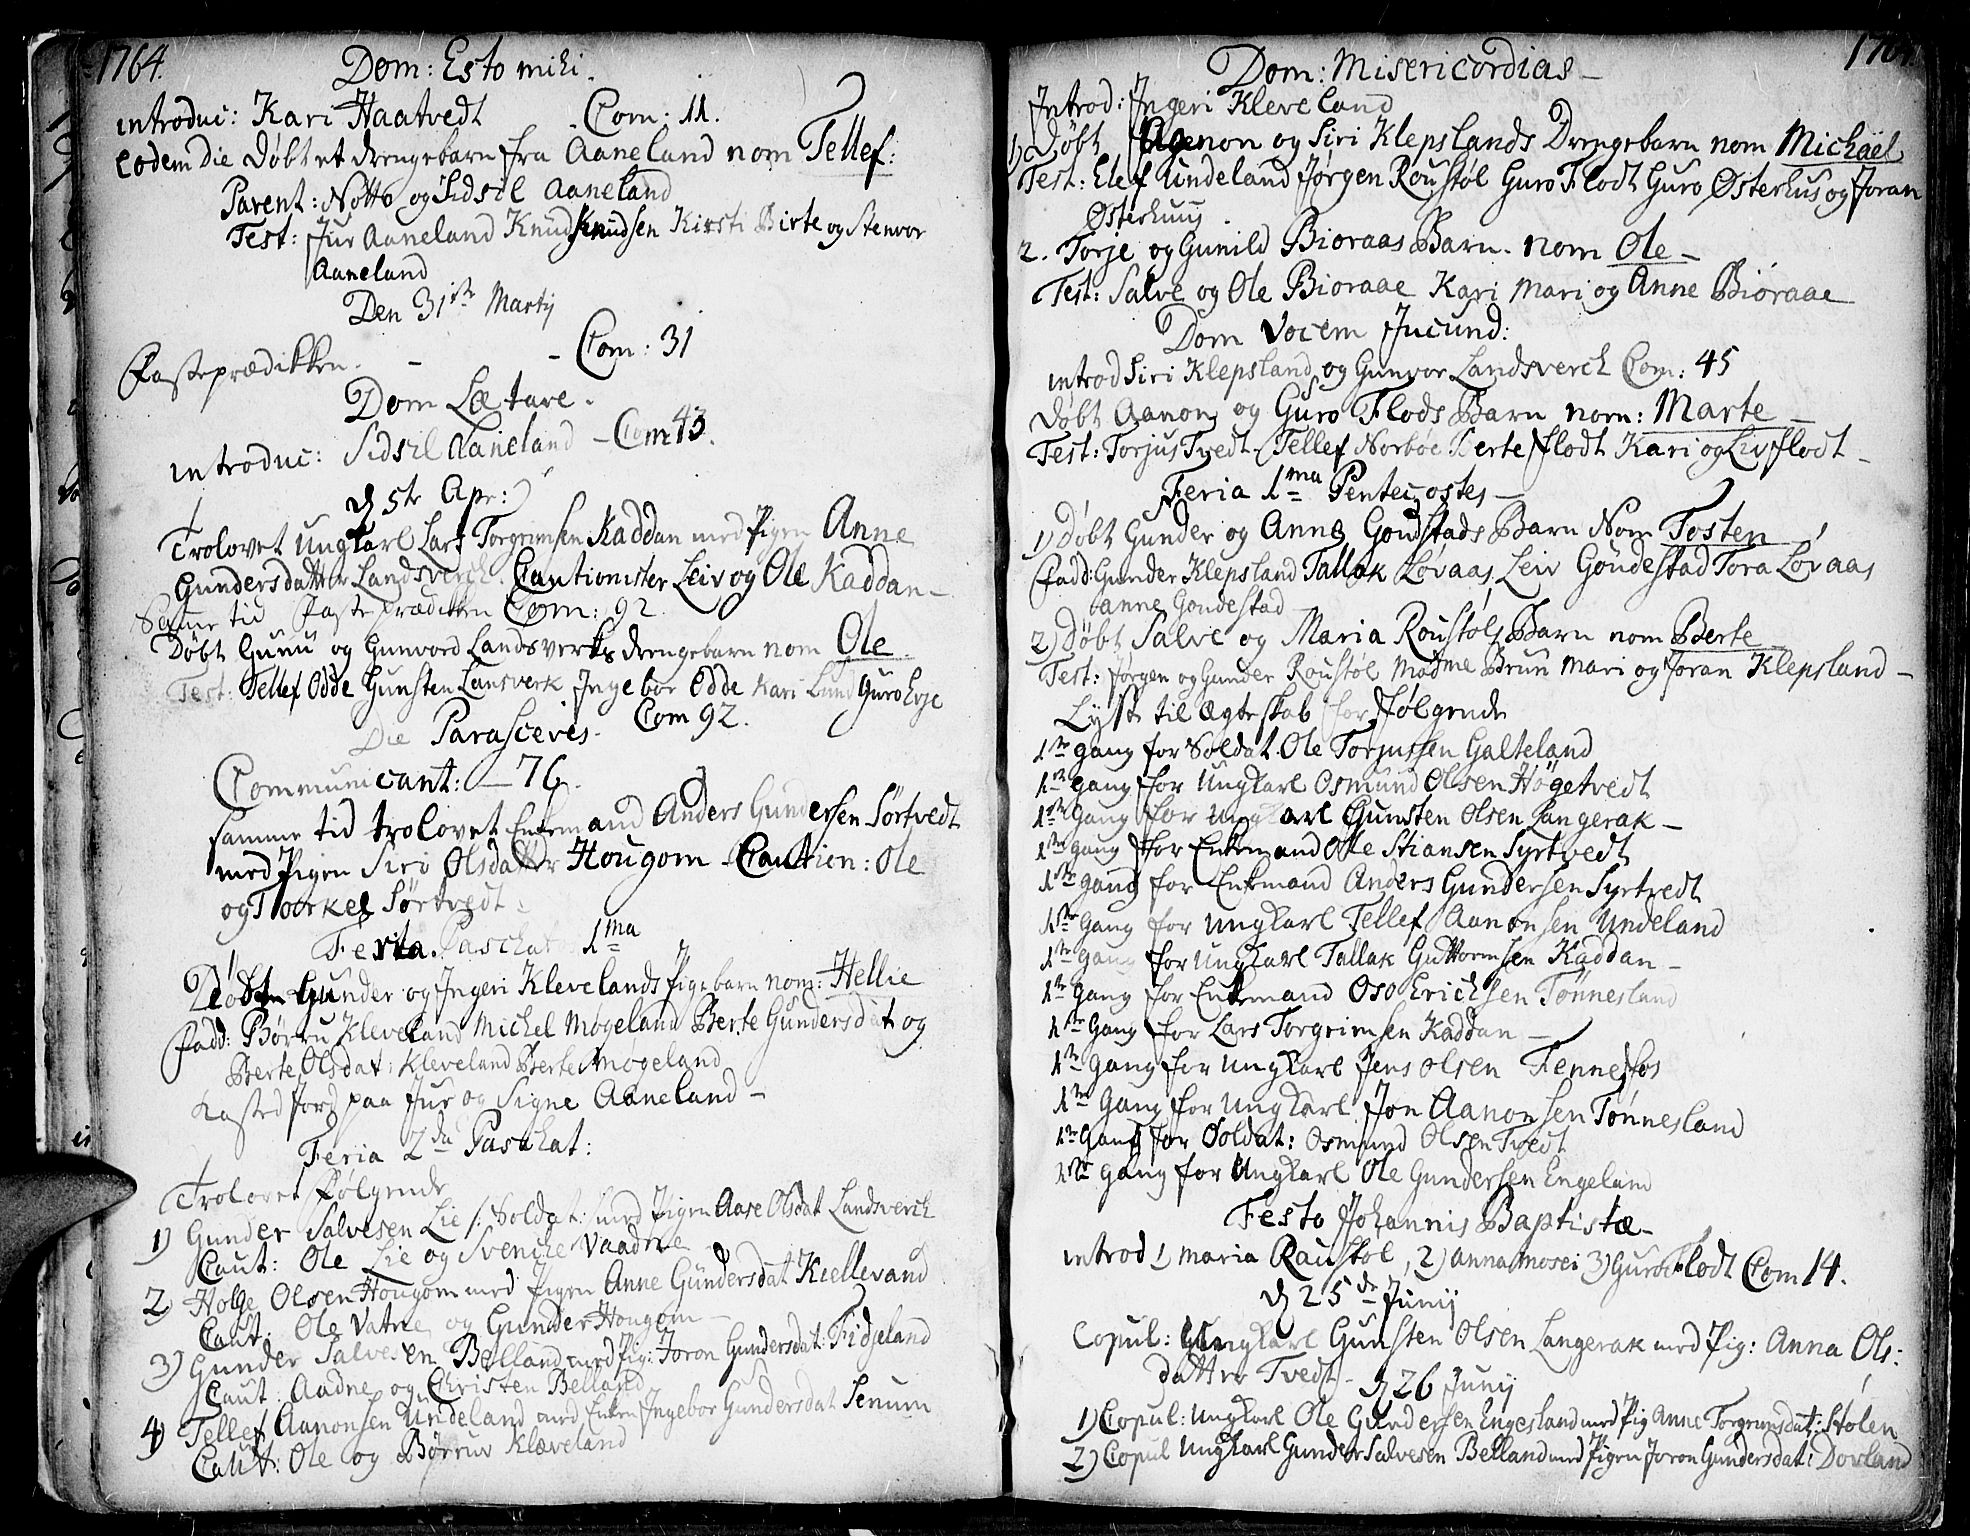 1764.
Dom: Esto mihi.
introduc: Kari Haatvedt Com: 11.
eodem Die Døbt et drengebarn fra Aaneland nom Tellef:
Parent: Notto og Sidsil Aaneland
Test: Jur Aaneland Knud Knudsen Kirsti Birte og Stenvor
Aaneland
Den 31te Martij
Fasteprædikken. - - Com: 31
Dom Lætare.
introduc: Sidsil Aaneland - Com 43.
d 5te Apr:
Trolovet Ungkarl Lars Torgrimsen Kaddan med Pigen Anne
Gundersdatter Landsverch. Cautionister Leiv og Ole Kaddan -
Samme tid Fasteprædikken Com: 92.
Døbt og Gunvord Landsverks drengebarn nom Ole.
Test: Tellef Odde Gunsten Lansverk Ingebor Odde Kari Lund Guro Evje
Die Parasceves. Com 92.
Communicant: - 76.
samme tid trolovet Enkemand Anders Gundersen Sörtvedt
med Pigen Siri Olsdatter Hougom - Caution: Ole
og Torkel Sörtvedt
Feria Paschat 1ma
Døbt Gunder og Ingeri Klevelands Pigebarn nom: Hellie
Fadd: Børru Kleveland Michel Mogeland Berte Gundersdat og
Berte Olsdat: Kleveland Berte Mogeland
Kasted Jord paa Jur og Signe Aaneland -
Feria 2da Paschat:
Trolovet Følgende
1) Gunder Salvesen Lie /: Soldat :/ med Pigen Aase Olsdat Landsverch
Caut: Ole Lie og Svenche Vaadne
2) Holge Olsen Hougom med Pigen Anne Gundersdat Kiellevand
Caut: Ole Vatne og Gunder Hougom
3) Gunder Salvesen Belland med Pig: Joron Gundersdat: Fidjeland
Caut: Aadne og Christen Belland
4) Tellef Aanonsen Undeland med Enken Ingebor Gundersdat Senum
Caut: Ole og Børruv Klæveland
1764.
Dom: Misericordias -
Introd: Ingeri Kleveland
1) Døbt Aanon og Siri Klepslands Drengebarn nom Michäel
Test: Elef Undeland Jørgen Roustøl Guro Flodt Guro Østerhus og Joran
Østerhuus.
2. Torje og Gunild Bioraas Barn. nom Ole -
Test: Salve og Ole Bioraae Kari Mari og Anne Bioraae
Dom Vocem Jucund:
introd Siri Klepsland og Gunvor Landsverch Com: 45
Døbt Aanon og Guro Flods Barn nom: Marte -
Test: Torjus Tvedt Tellef Norbøe Berte Flodt Kari og Liv Flodt -
Feria 1ma Pentecostes -
1) Døbt Gunder og Anne Goudstads Barn Nom Tosten
Fadd: Gunder Klepsland Tallak Løvaas Leiv Goudestad Tora Løvaas
anne Goudestad
2) Døbt Salve og Maria Roustøls Barn nom Berte
Test: Jørgen og Gunder Roustøl Madme Brun Mari og Joran Klepsland -
Lyst til Ægteskab for følgende
1te gang for Soldat. Ole Torjussen Galteland
1te gang for Ungkarl Osmund Olsen Høgetvedt
1te Gang for Ungkarl Gunsten Olsen Langerak -
1te gang for Enkemand Ole Stiansen Syrtvedt
1te gang for Enkemand Anders Gundersen Syrtvedt
1te Gang for Ungkarl Tellef Aanonsen Undeland
1te Gang for Ungkarl Tallak Guttormsen Kaddan -
1te Gang for Enkemand Oso Erichsen Tønnesland
1te Gang for Lars Torgrimsen Kaddan -
1te Gang for Ungkarl Jens Olsen Fennefos
1te Gang for Ungkarl Jon Aanonsen Tønnesland
1te Gang for Soldat: Osmund Olsen Tvedt
1te Gang for Ungkarl Ole Gundersen Engeland
Festo Johannis Baptistæ -
introd 1) Maria Roustøl, 2) Anna Mosei 3) Guro Flodt Com 14.
d 25de Junij
Copul: Ungkarl Gunsten Olsen Langerak med Pig: Anna Ols:
datter Tvedt -
d 26 Junij
1) Copul: Ungkarl Ole Gundersen Engesland med Pig Anne Torgrimsdat: Stolen
2) Copul Ungkarl Gunder Salvesen Belland med Pigen Joron Gundersdat: Dovland